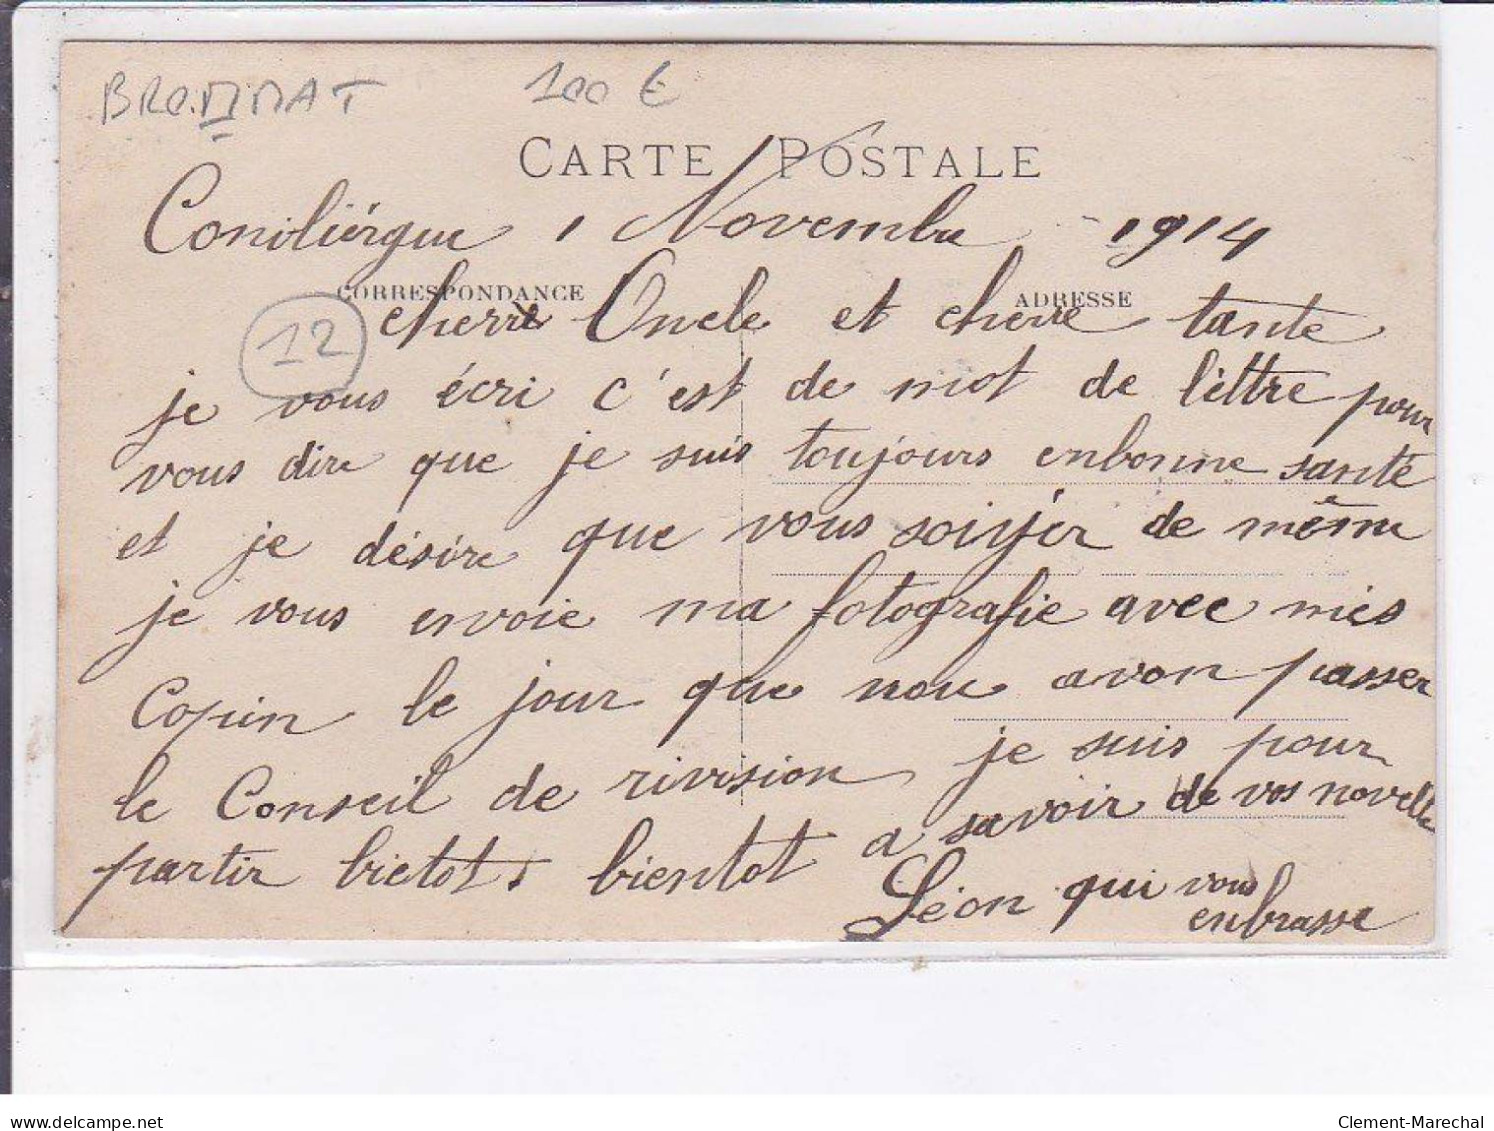 BROMMAT 100 €
CARTE POSTALE
1 Novembre 1914
CORRESPONDANCE ADRESSE
12
cherre Oncle et cherre tante
je vous écri c'est de mot de lettre pour
vous dire que je suis toujours enbonne santé
et je désire que vous soiyér de même
je vous envoie ma fotografie avec més
Copin le jour que nou avon passer
le Conseil de rivision je suis pour
partir bietot. bientot a savoir de vos novelle
Léon qui vous
enbrasse
www.delcampe.net
Clement-Marechal